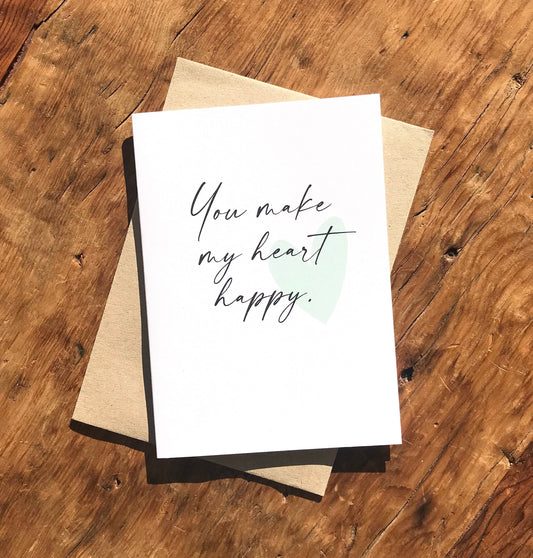 You make
my heart
happy.